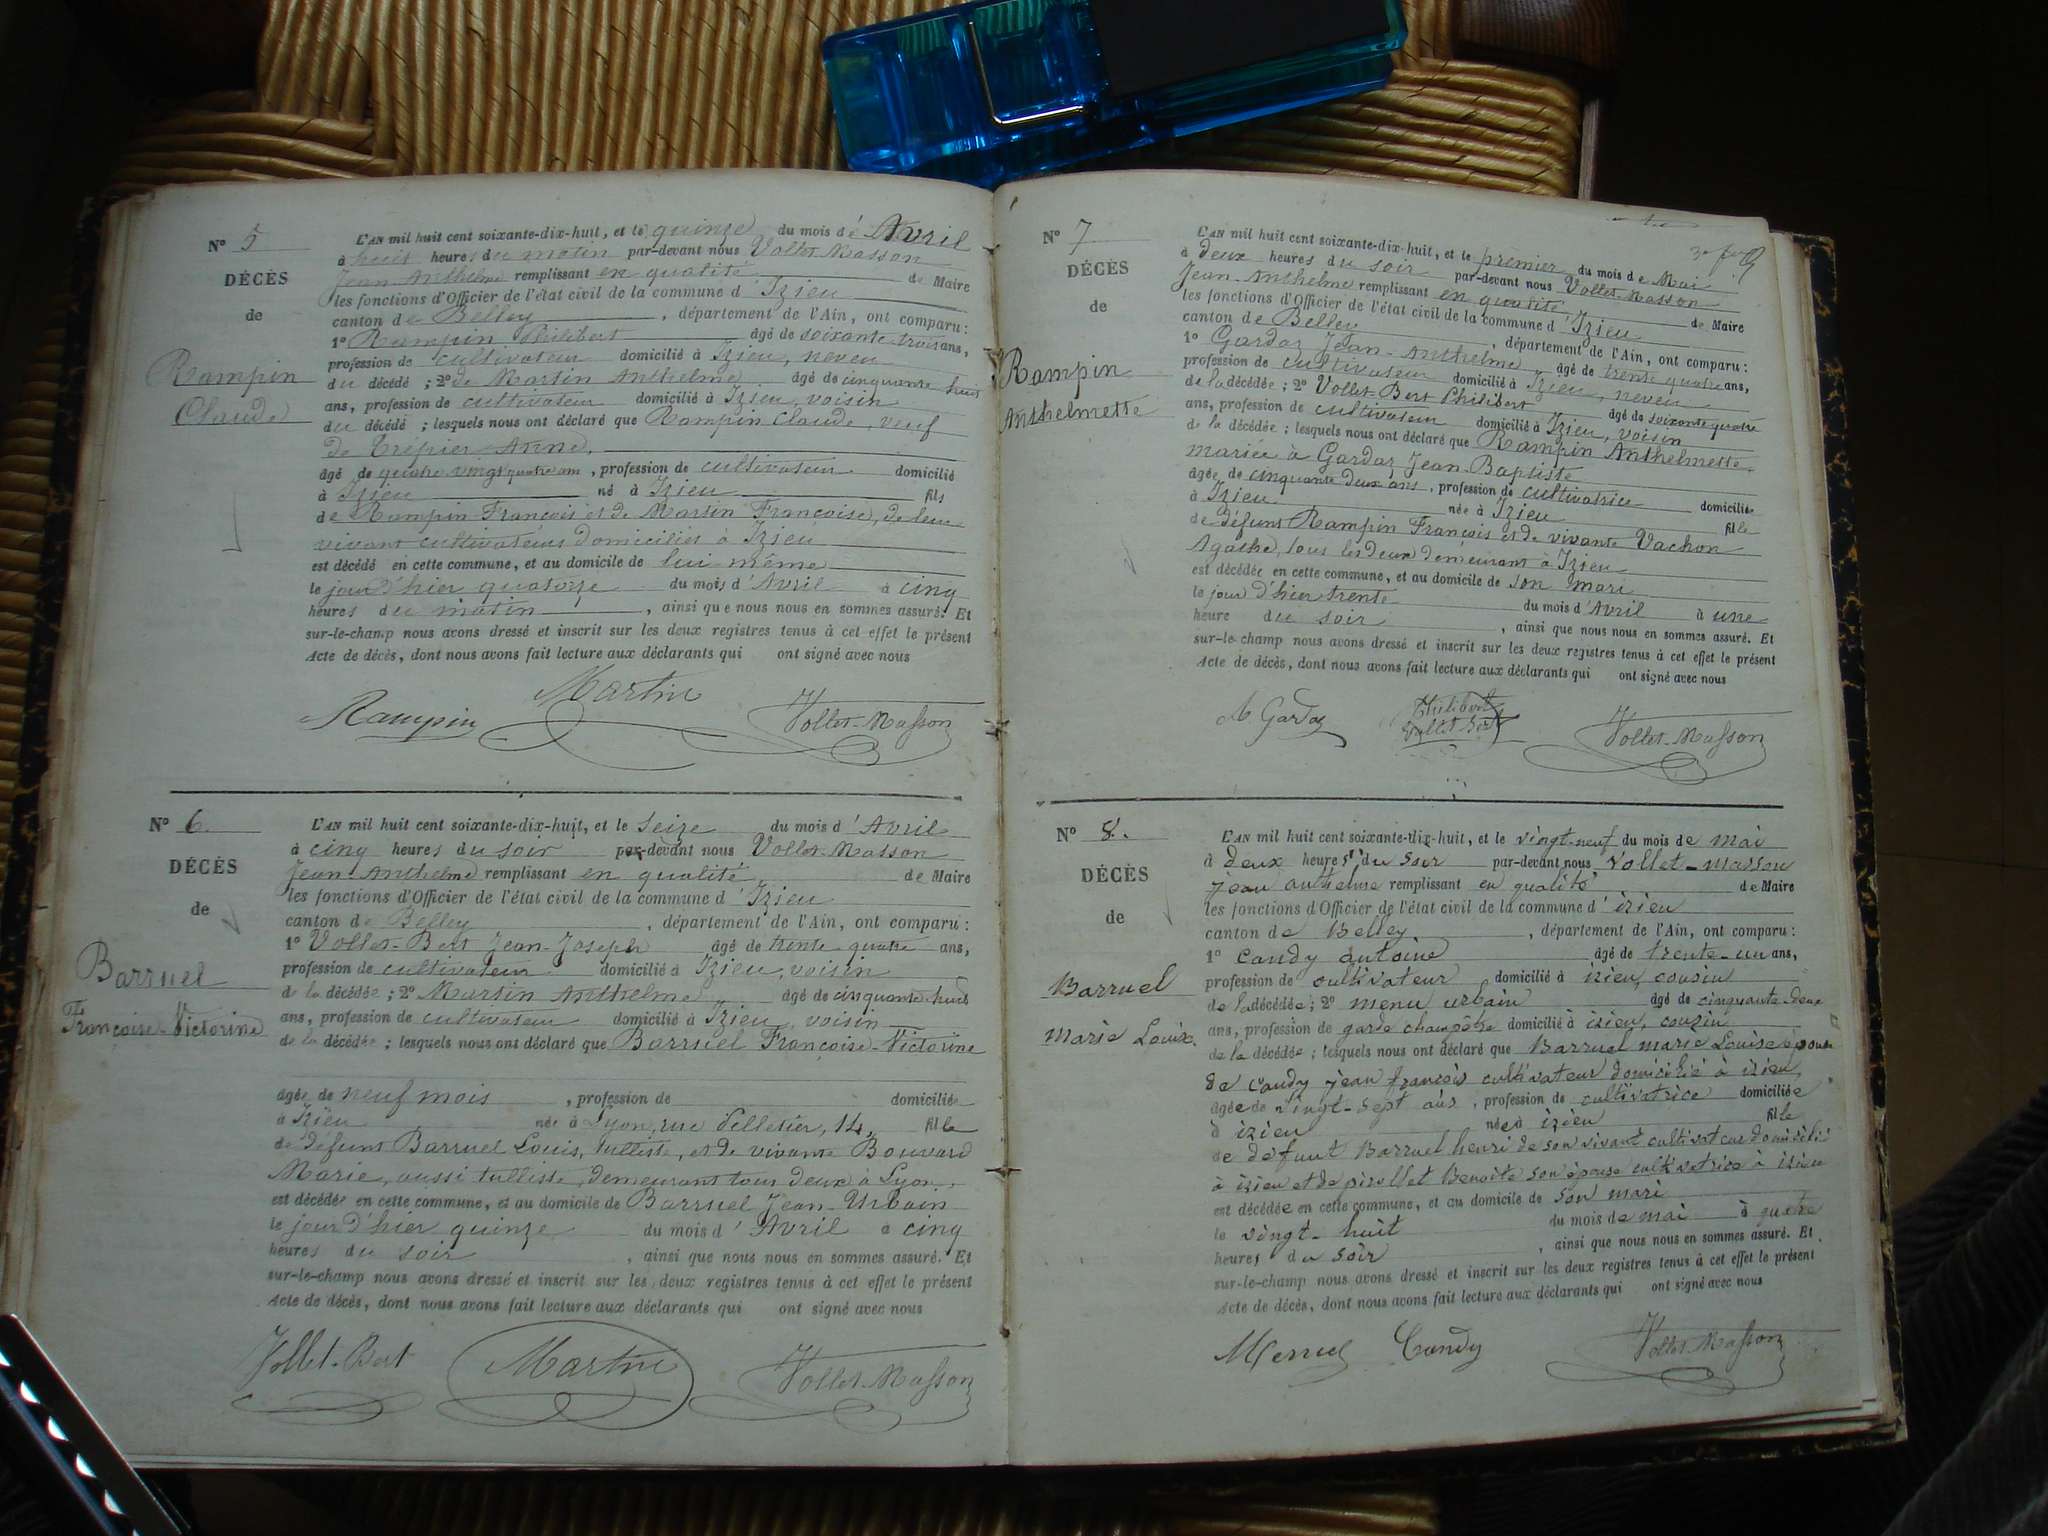 N° 5
DÉCÈS
de
Rampin
Claude
L'AN mil huit cent soixante-dix-huit, et le quinze du mois d'Avril
à huit heures du matin par-devant nous Vollet-Masson
Jean-Anthelme remplissant en qualité de Maire
les fonctions d'Officier de l'état civil de la commune d'Izieu
canton de Belley, département de l'Ain, ont comparu :
1° Rampin Philibert âgé de soixante trois ans,
profession de cultivateur domicilié à Izieu, neveu
du décédé ; 2° de Martin Anthelme âgé de cinquante huit
ans, profession de cultivateur domicilié à Izieu, voisin
du décédé ; lesquels nous ont déclaré que Rampin Claude, veuf
de Trépier Anne,
âgé de quatre vingt quatre ans, profession de cultivateur domicilié
à Izieu né à Izieu fils
de Rampin François et de Martin Françoise, de leur
vivant cultivateurs domiciliés à Izieu
est décédé en cette commune, et au domicile de lui-même
le jour d'hier quatorze du mois d'Avril à cinq
heures du matin, ainsi que nous nous en sommes assuré. Et
sur-le-champ nous avons dressé et inscrit sur les deux registres tenus à cet effet le présent
Acte de décès, dont nous avons fait lecture aux déclarants qui ont signé avec nous
Rampin Martin Vollet-Masson
N° 6
DÉCÈS
de
Barruel
Françoise-Victorine
L'AN mil huit cent soixante-dix-huit, et le seize du mois d'Avril
à cinq heures du soir par-devant nous Vollet-Masson
Jean-Anthelme remplissant en qualité de Maire
les fonctions d'Officier de l'état civil de la commune d'Izieu
canton de Belley, département de l'Ain, ont comparu :
1° Vollet-Bert Jean-Joseph âgé de trente-quatre ans,
profession de cultivateur domicilié à Izieu, voisin
de la décédée ; 2° Martin Anthelme âgé de cinquante huit
ans, profession de cultivateur domicilié à Izieu, voisin
de la décédée ; lesquels nous ont déclaré que Barruel Françoise-Victorine
âgée de neuf mois, profession de domiciliée
à Izieu née à Lyon, rue Pelletier, 14, fille
de défunt Barruel Louis, tulliste, et de vivante Bouvard
Marie, aussi tulliste, demeurant tous deux à Lyon,
est décédée en cette commune, et au domicile de Barruel Jean-Urbain
le jour d'hier quinze du mois d'Avril à cinq
heures du soir, ainsi que nous nous en sommes assuré. Et
sur-le-champ nous avons dressé et inscrit sur les deux registres tenus à cet effet le présent
Acte de décès, dont nous avons fait lecture aux déclarants qui ont signé avec nous
Vollet-Bert Martin Vollet-Masson
N° 7
DÉCÈS
de
Rampin
Anthelmette
L'AN mil huit cent soixante-dix-huit, et le premier du mois de Mai
à deux heures du soir par-devant nous Vollet-Masson
Jean-Anthelme remplissant en qualité de Maire
les fonctions d'Officier de l'état civil de la commune d'Izieu
canton de Belley, département de l'Ain, ont comparu :
1° Gardaz Jean-Anthelme âgé de trente quatre ans,
profession de cultivateur domicilié à Izieu, neveu
de la décédée ; 2° Vollet-Bert Philibert âgé de soixante quatre
ans, profession de cultivateur domicilié à Izieu, voisin
de la décédée ; lesquels nous ont déclaré que Rampin Anthelmette
mariée à Gardaz Jean-Baptiste
âgée de cinquante deux ans, profession de cultivatrice domiciliée
à Izieu née à Izieu fille
de défunt Rampin François et de vivante Vachon
Agathe, tous les deux demeurant à Izieu
est décédée en cette commune, et au domicile de son mari
le jour d'hier trente du mois d'Avril à une
heure du soir, ainsi que nous nous en sommes assuré. Et
sur-le-champ nous avons dressé et inscrit sur les deux registres tenus à cet effet le présent
Acte de décès, dont nous avons fait lecture aux déclarants qui ont signé avec nous
Gardaz Philibert Vollet Bert Vollet-Masson
N° 8.
DÉCÈS
de
Barruel
Marie Louise
L'AN mil huit cent soixante-dix-huit, et le vingt-neuf du mois de mai
à deux heures du soir par-devant nous Vollet-masson
jean anthelme remplissant en qualité de Maire
les fonctions d'Officier de l'état civil de la commune d'izieu
canton de Belley, département de l'Ain, ont comparu :
1° Candy antoine âgé de trente-un ans,
profession de cultivateur domicilié à izieu, cousin
de la décédée ; 2° menu urbain âgé de cinquante deux
ans, profession de garde champêtre domicilié à izieu, cousin
de la décédée ; lesquels nous ont déclaré que Barruel marie Louise épouse
de Candy jean françois cultivateur domicilié à izieu
âgée de vingt-sept ans, profession de cultivatrice domiciliée
à izieu née à izieu fille
de défunt Barruel henri de son vivant cultivateur domicilié
à izieu et de pirollet Benoîte son épouse cultivatrice à izieu
est décédée en cette commune, et au domicile de son mari
le vingt-huit du mois de mai à quatre
heures du soir, ainsi que nous nous en sommes assuré. Et
sur-le-champ nous avons dressé et inscrit sur les deux registres tenus à cet effet le présent
Acte de décès, dont nous avons fait lecture aux déclarants qui ont signé avec nous
Candy Vollet-Masson